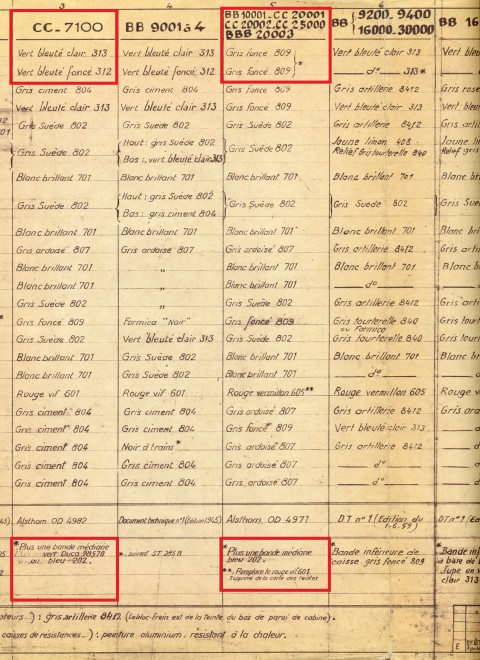 3
CC-7100
Vert bleuté clair 313
Vert bleuté foncé 312
Gris ciment 804
Vert bleuté clair 313
Gris Suède 802
Gris Suède 802
Blanc brillant 701
Gris Suède 802
Blanc brillant 701
Gris ardoise 807
Blanc brillant 701
Blanc brillant 701
Gris Suède 802
Gris foncé 809
Gris Suède 802
Blanc brillant 701
Blanc brillant 701
Rouge vif 601
Gris ciment 804
Gris ciment 804
Gris ciment 804
Gris ciment 804
Gris ciment 804
Alsthom OD 4982
* Plus une bande médiane
vert Duco 98570
ou bleu 202.
4
BB 9001à 4
Vert bleuté clair 313
Vert bleuté foncé 312
Gris ciment 804
Vert bleuté clair 313
Gris Suède 802
Haut: gris Suède 802
Bas: vert bleuté clair 313
Blanc brillant 701
Haut: gris Suède 802
Bas: gris ciment 804
Blanc brillant 701
Gris ardoise 807
"
"
"
Formica "Noir"
Vert bleuté clair 313
Gris Suède 802
Gris Suède 802
Rouge vif 601
Gris ciment 804
Gris ciment 804
Noir d trains*
Gris ciment 804
Gris ciment 804
Document technique n°1
*. suivant ST 285 B
5
BB 10001_CC 20001
CC 20002_CC 25000
BBB 20003
Gris foncé 809
Gris foncé 809 *
Gris foncé 809
Gris foncé 809
Gris Suède 802
Gris Suède 802
Blanc brillant 701
Gris Suède 802
Blanc brillant 701
Gris ardoise 807
Blanc brillant 701
Blanc brillant 701
Gris Suède 802
Gris foncé 809
Gris Suède 802
Gris Suède 802
Blanc brillant 701
Rouge vermillon 605**
Gris ardoise 807
Gris foncé 809
Gris ardoise 807
Gris ardoise 807
Gris ardoise 807
Alsthom OD 4971
* Plus une bande médiane
bleu 202.
**. Remplace le rouge vif 601
Supprimé de la carte des teintes
6
BB 9200_9400
16000_30000
Vert bleuté clair 313
d° 313*
Gris artillerie 8412
Vert bleuté clair 313
Gris artillerie 8412
Jaune limon 408
Relief gris tourterelle 840
Blanc brillant 701
Gris Suede 802
Blanc brillant 701
Gris artillerie 8412
Blanc brillant 701
d°
Gris artillerie 8412
Gris tourterelle 840
ou Formica
Gris tourterelle 840
Blanc brillant 701
d°
Rouge vermillon 605
Gris artillerie 8412
Vert bleuté clair 313
Gris artillerie 8412
d°
d°
DT n° 1 (Edition du
1-6-59)
* Bande inférieure de
caisse gris foncé 809
BB 16
Vert bleu
Gris rose
Vert bleu
Gris arti
Jaune
Relief gris
Blanc bri
Gris Suè
Blanc bri
Gris arti
Blanc b
d
Gris arti
Gris tour
Gris tour
Blanc bri
Rouge v
Gris ard
DT n° 1
* Bande in
à bare de
Jupe en v
clair 313
oteurs...) : gris artillerie 8412 (Le bloc-frein est de la teinte du bas de paroi de cabine).
causes de résistances...) : peinture aluminium, résistant à la chaleur.
E